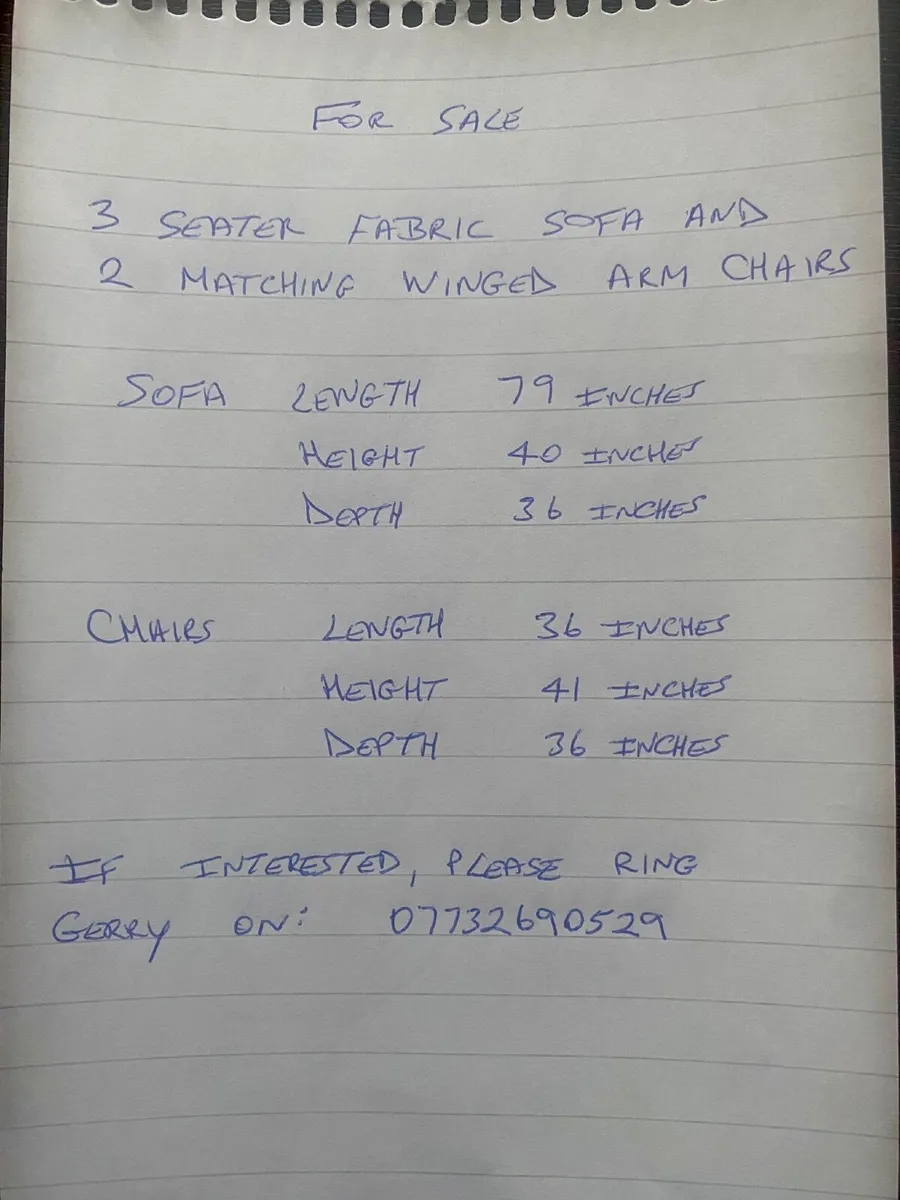 FOR SALE
3 SEATER FABRIC SOFA AND
2 MATCHING WINGED ARM CHAIRS
SOFA LENGTH 79 INCHES
HEIGHT 40 INCHES
DEPTH 36 INCHES
CHAIRS LENGTH 36 INCHES
HEIGHT 41 INCHES
DEPTH 36 INCHES
IF INTERESTED, PLEASE RING
GERRY ON: 07732690529